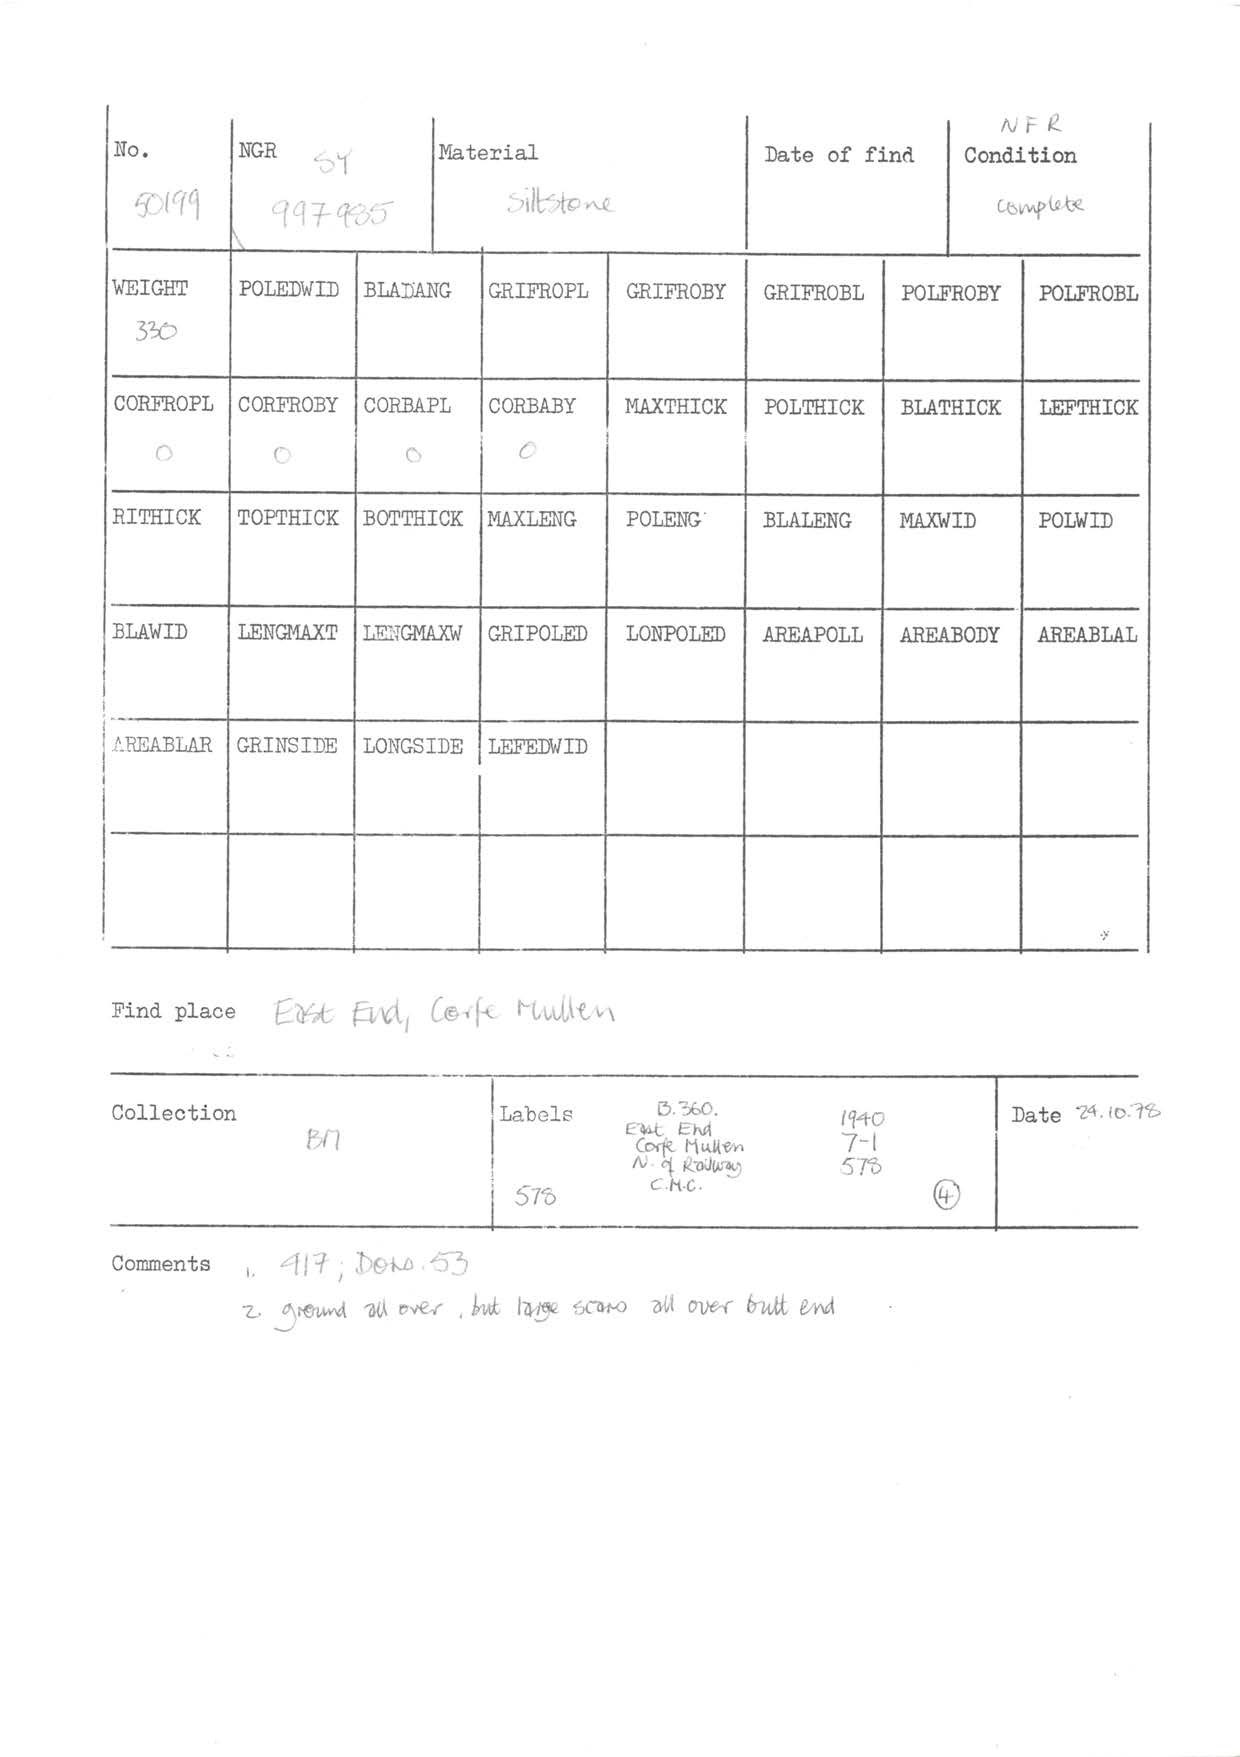 NFR
No. NGR SY Material Date of find Condition
50199 997985 Siltstone complete
WEIGHT POLEDWID BLADANG GRIFROPL GRIFROBY GRIFROBL POLFROBY POLFROBL
330
CORFROPL CORFROBY CORBAPL CORBABY MAXTHICK POLTHICK BLATHICK LEFTHICK
0 0 0 0
RITHICK TOPTHICK BOTTHICK MAXLENG POLENG BLALENG MAXWID POLWID
BLAWID LENGMAXT LENGMAXW GRIPOLED LONPOLED AREAPOLL AREABODY AREABLAL
AREABLAR GRINSIDE LONGSIDE LEFEDWID
Find place East End, Corfe Mullen
Collection BM
Labels B.360.
East End
Corfe Mullen
N. of Railway
C.M.C.
578
1940
7-1
578
4
Date 29.10.78
Comments 1. 417; Do 53
2. ground all over, but large scars all over butt end